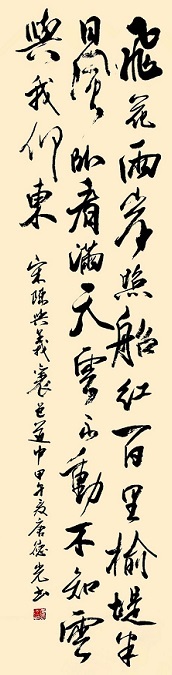 飛花两岸照船紅百里榆堤半
日風卧看滿天雲不動不知雲
與我仰東
宋陳與義襄邑道中甲午夏唐德光書